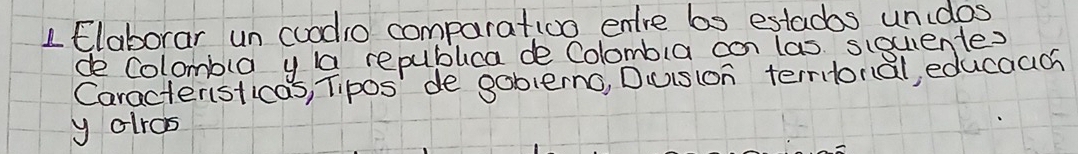 1 Elaborar un cuadro comparativo entre los estados unidos
de Colombia y la republica de Colombia con las siguientes
Caracteristicas, Tipos de gobierno, Division territorial, educación
y otros